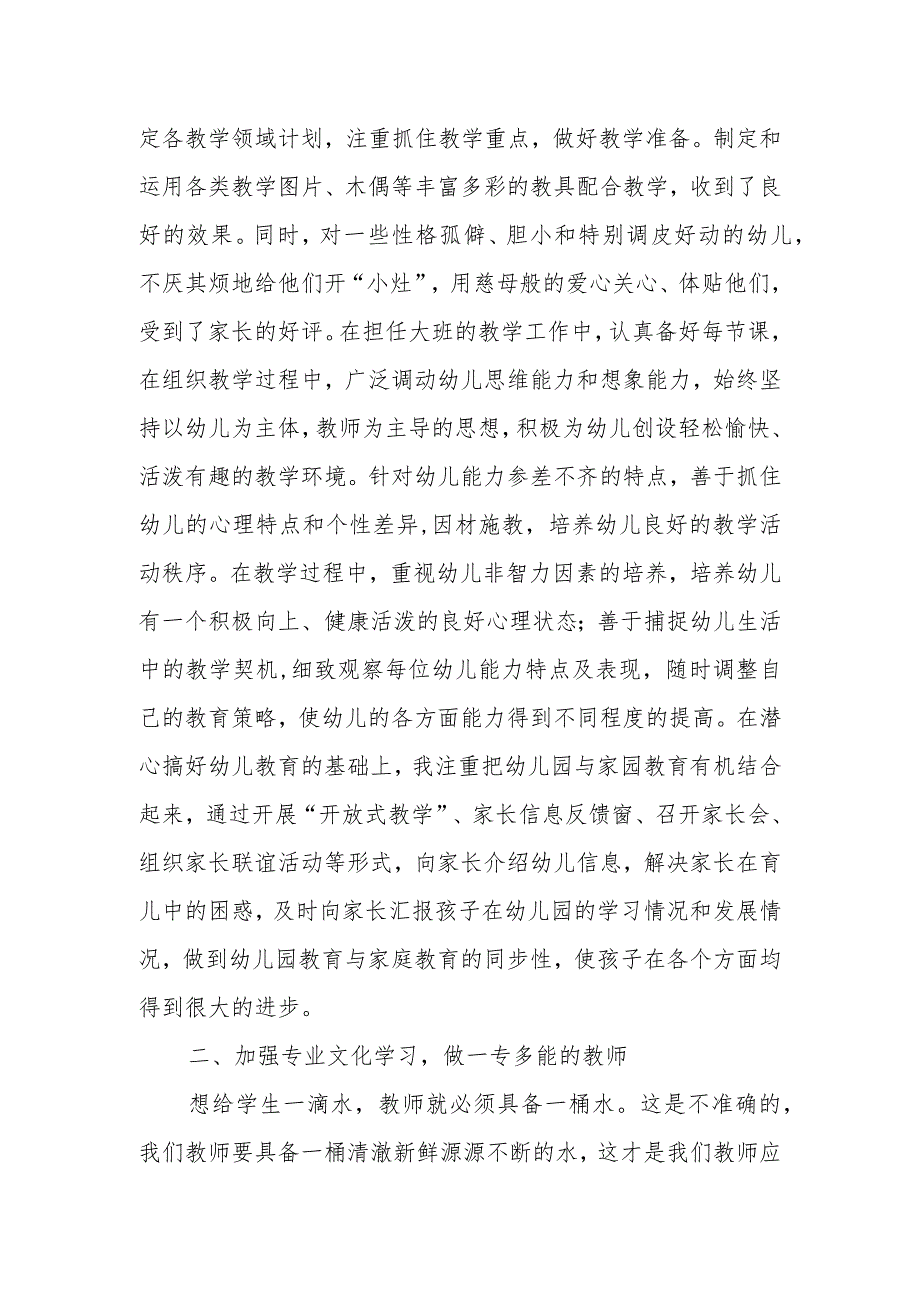 定各教学领域计划，注重抓住教学重点，做好教学准备。制定和
运用各类教学图片、木偶等丰富多彩的教具配合教学，收到了良
好的效果。同时，对一些性格孤僻、胆小和特别调皮好动的幼儿，
不厌其烦地给他们开“小灶”，用慈母般的爱心关心、体贴他们，
受到了家长的好评。在担任大班的教学工作中，认真备好每节课，
在组织教学过程中，广泛调动幼儿思维能力和想象能力，始终坚
持以幼儿为主体，教师为主导的思想，积极为幼儿创设轻松愉快、
活泼有趣的教学环境。针对幼儿能力参差不齐的特点，善于抓住
幼儿的心理特点和个性差异,因材施教，培养幼儿良好的教学活
动秩序。在教学过程中，重视幼儿非智力因素的培养，培养幼儿
有一个积极向上、健康活泼的良好心理状态；善于捕捉幼儿生活
中的教学契机,细致观察每位幼儿能力特点及表现，随时调整自
己的教育策略，使幼儿的各方面能力得到不同程度的提高。在潜
心搞好幼儿教育的基础上，我注重把幼儿园与家园教育有机结合
起来，通过开展“开放式教学”、家长信息反馈窗、召开家长会、
组织家长联谊活动等形式，向家长介绍幼儿信息，解决家长在育
儿中的困惑，及时向家长汇报孩子在幼儿园的学习情况和发展情
况，做到幼儿园教育与家庭教育的同步性，使孩子在各个方面均
得到很大的进步。
二、加强专业文化学习，做一专多能的教师
想给学生一滴水，教师就必须具备一桶水。这是不准确的，
我们教师要具备一桶清澈新鲜源源不断的水，这才是我们教师应